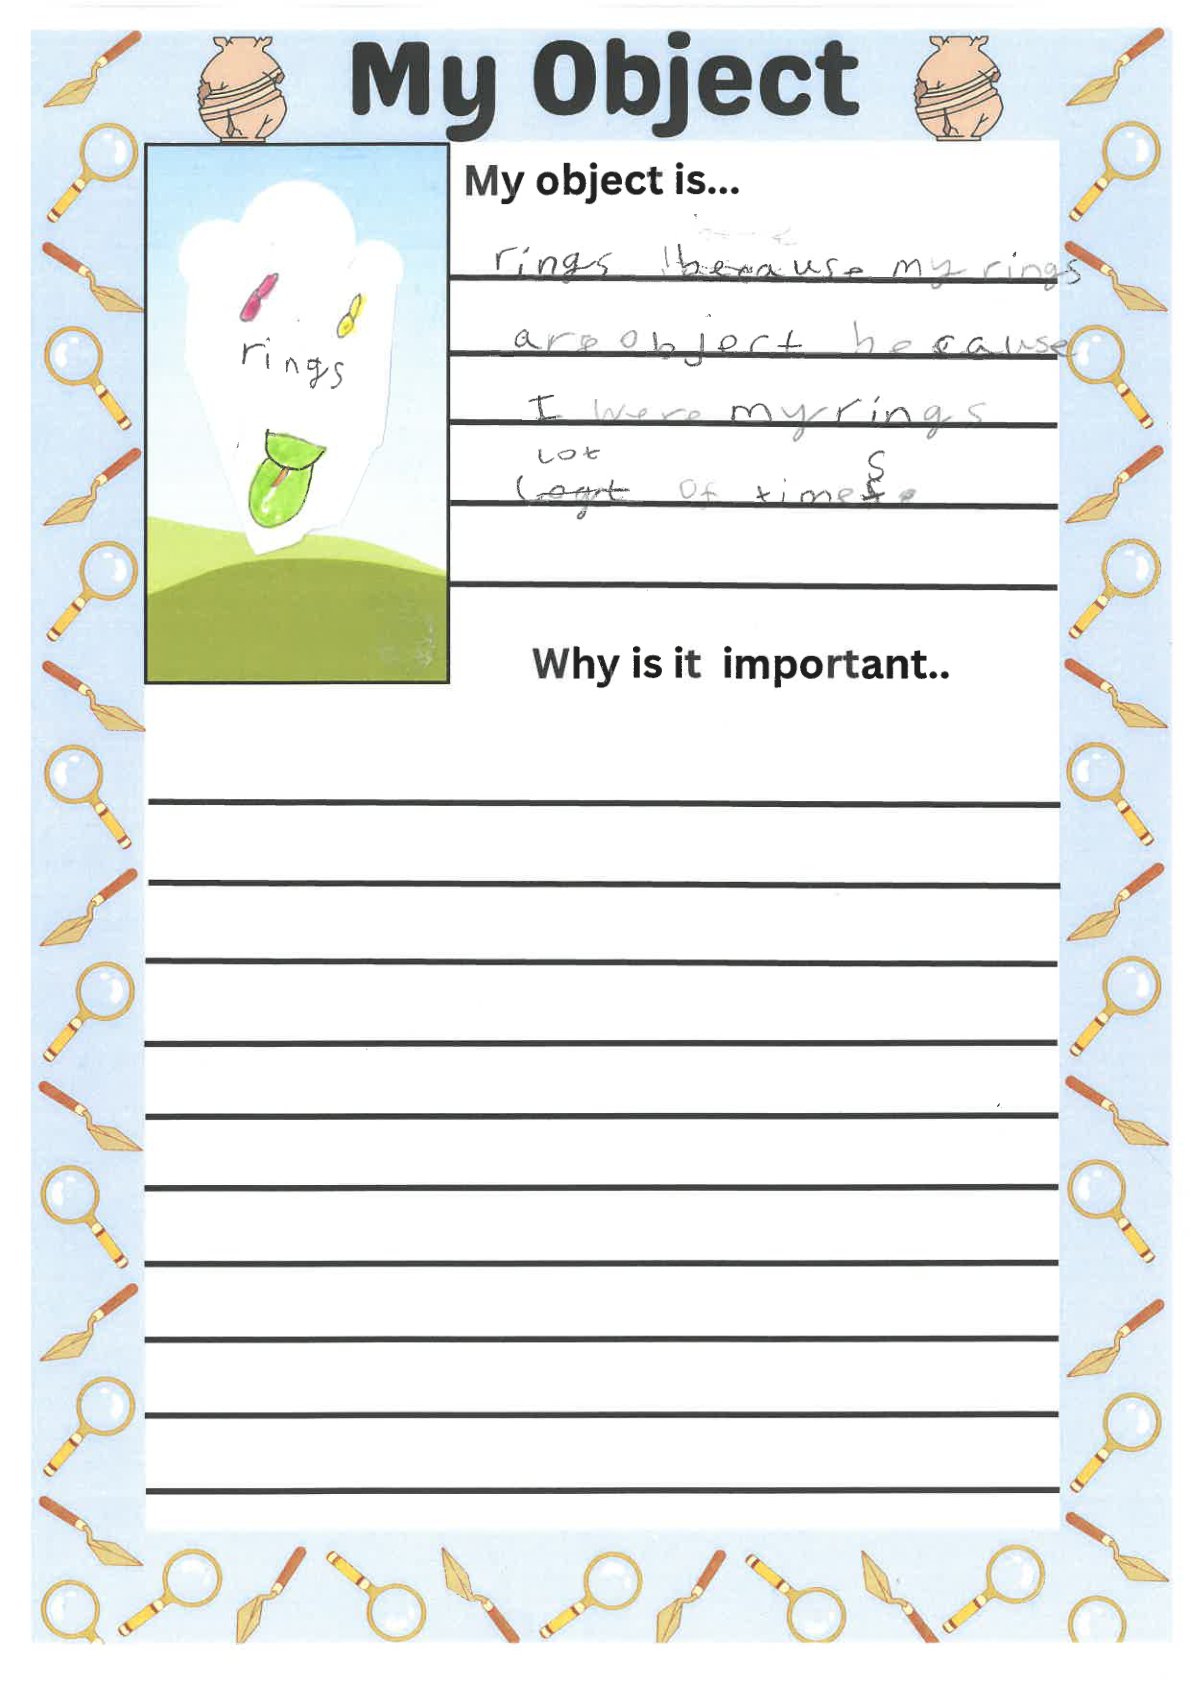 My Object
My object is...
rings because my rings
are object because
I were my rings
lot
of times.
rings
Why is it important..